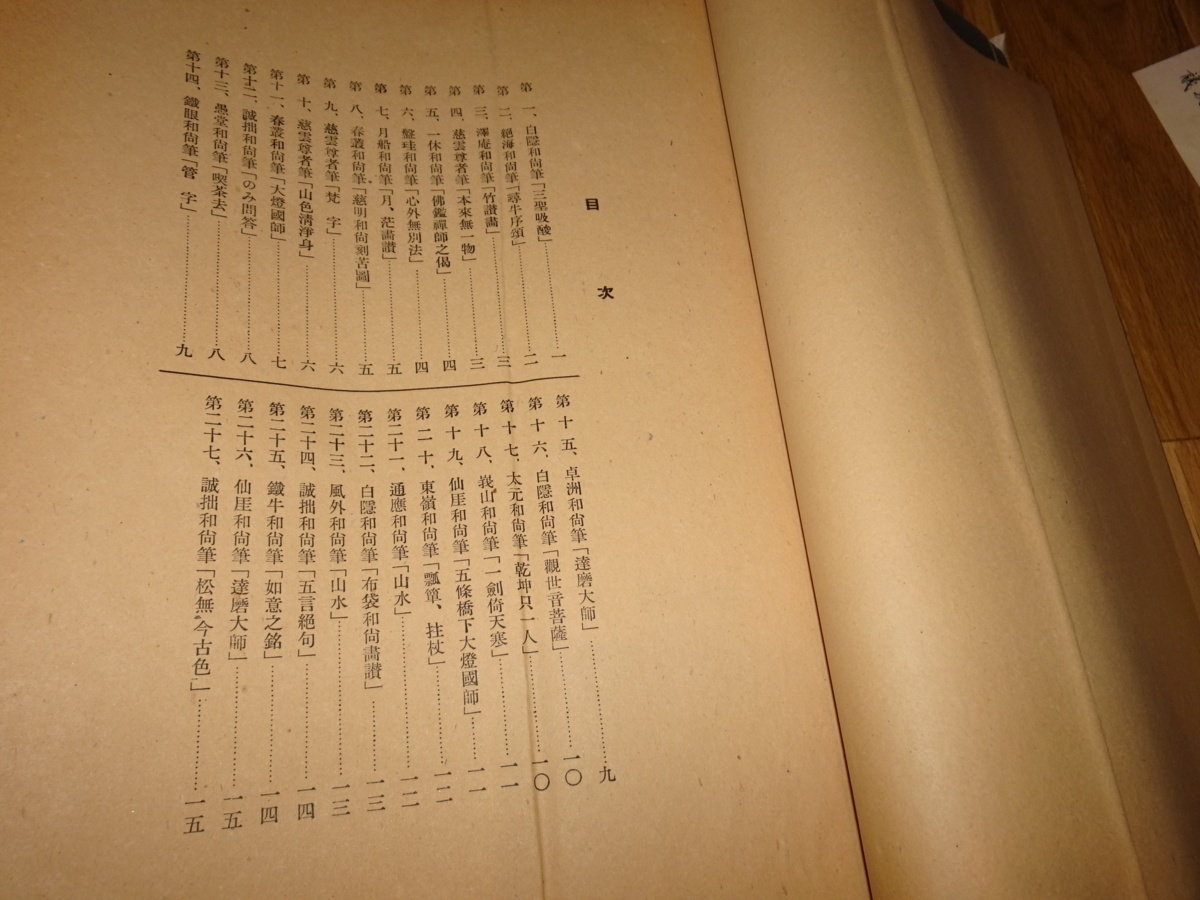 目次
第一、白隱和尙筆「三聖吸酸」…一
第二、絕海和尙筆「尋牛序頌」…二
第三、澤庵和尙筆「竹讚畵」…三
第四、慈雲尊者筆「本來無一物」…三
第五、一休和尙筆「佛鑑禪師之偈」…四
第六、盤珪和尙筆「心外無別法」…四
第七、月船和尙筆「月、茫畵讚」…五
第八、春叢和尙筆「慈明和尙刻苦圖」…五
第九、慈雲尊者筆「梵字」…六
第十、慈雲尊者筆「山色淸淨身」…六
第十一、春叢和尙筆「大燈國師」…七
第十二、誠拙和尙筆「のみ問答」…八
第十三、愚堂和尙筆「喫茶去」…八
第十四、鐵眼和尙筆「管字」…九
第十五、卓洲和尙筆「達磨大師」…九
第十六、白隱和尙筆「觀世音菩薩」…一〇
第十七、太元和尙筆「乾坤只一人」…一〇
第十八、峩山和尙筆「一劍倚天寒」…一一
第十九、仙厓和尙筆「五條橋下大燈國師」…一一
第二十、東嶺和尙筆「瓢簞、拄杖」…一二
第二十一、通應和尙筆「山水」…一二
第二十二、白隱和尙筆「布袋和尙畵讚」…一三
第二十三、風外和尙筆「山水」…一三
第二十四、誠拙和尙筆「五言絕句」…一四
第二十五、鐵牛和尙筆「如意之銘」…一四
第二十六、仙厓和尙筆「達磨大師」…一五
第二十七、誠拙和尙筆「松無今古色」…一五